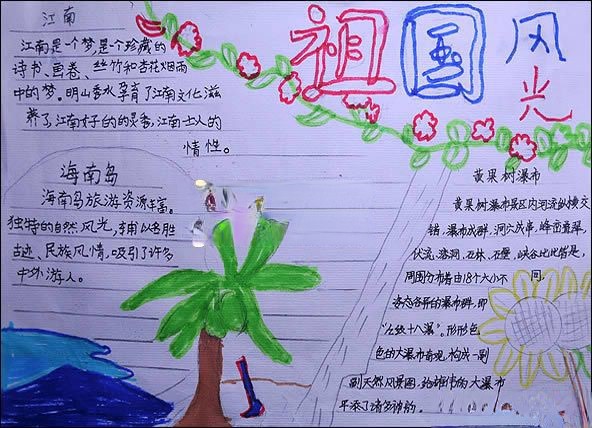 祖国风光
江南
江南是一个梦,是一个珍藏的
诗书、画卷、丝竹和杏花烟雨
中的梦。明山秀水孕育了江南文化,滋
养了江南女子的灵秀,江南士人的
情性。
海南岛
海南岛旅游资源丰富。
独特的自然风光,辅以名胜
古迹、民族风情,吸引了许多
中外游人。
黄果树瀑布
黄果树瀑布景区内河流纵横交
错,瀑布成群,洞穴成串,峰峦叠翠,
伏流、溶洞、石林、石壁、峡谷比比皆是,
周围分布着由18个大小不同、
姿态各异的瀑布群,即
"九级十八瀑"。形形色
色的大瀑布奇观,构成一副
副天然风景图,给雄伟的大瀑布
平添了诸多神韵。